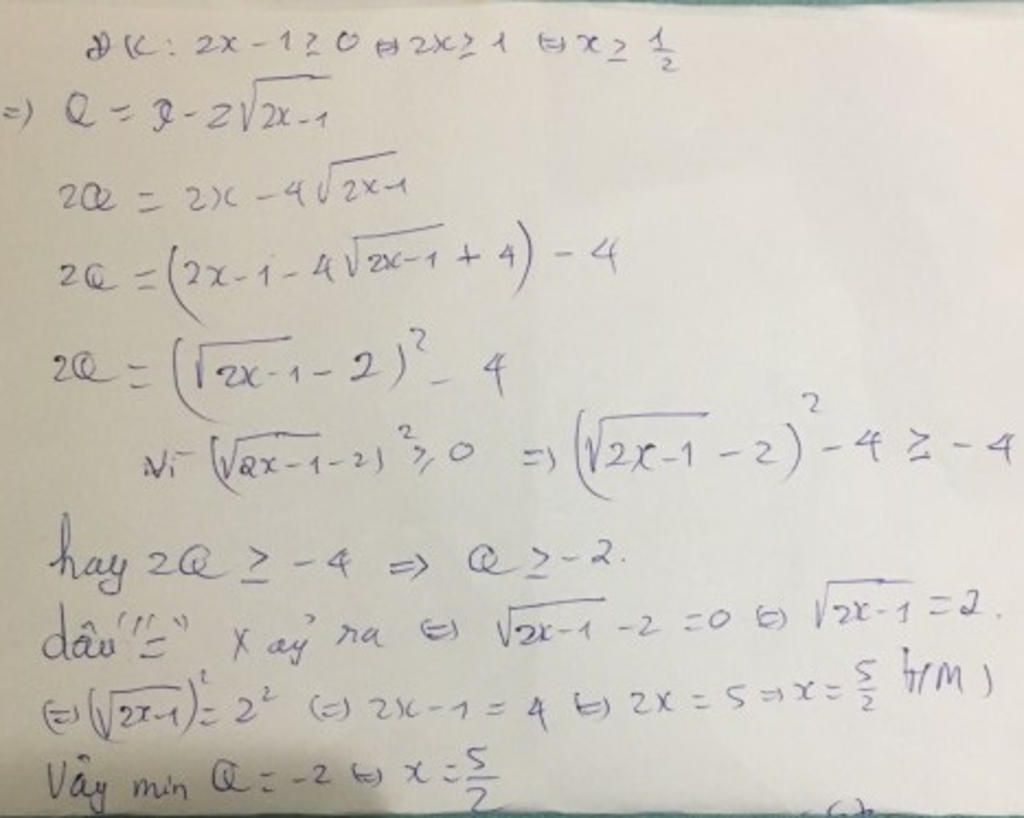 ĐK: 2x - 1 ≥ 0 ⇔ 2x ≥ 1 ⇔ x ≥ 1/2
=) Q = x - 2√(2x-1)
2Q = 2x - 4√(2x-1)
2Q = (2x - 1 - 4√(2x-1) + 4) - 4
2Q = (√(2x-1) - 2)² - 4
Vì (√(2x-1) - 2)² ≥ 0 => (√(2x-1) - 2)² - 4 ≥ - 4
hay 2Q ≥ - 4 => Q ≥ - 2.
dấu "=" xảy ra ⇔ √(2x-1) - 2 = 0 ⇔ √(2x-1) = 2.
⇔ (√(2x-1))² = 2² ⇔ 2x - 1 = 4 ⇔ 2x = 5 => x = 5/2 (t/m)
Vây min Q = -2 ⇔ x = 5/2